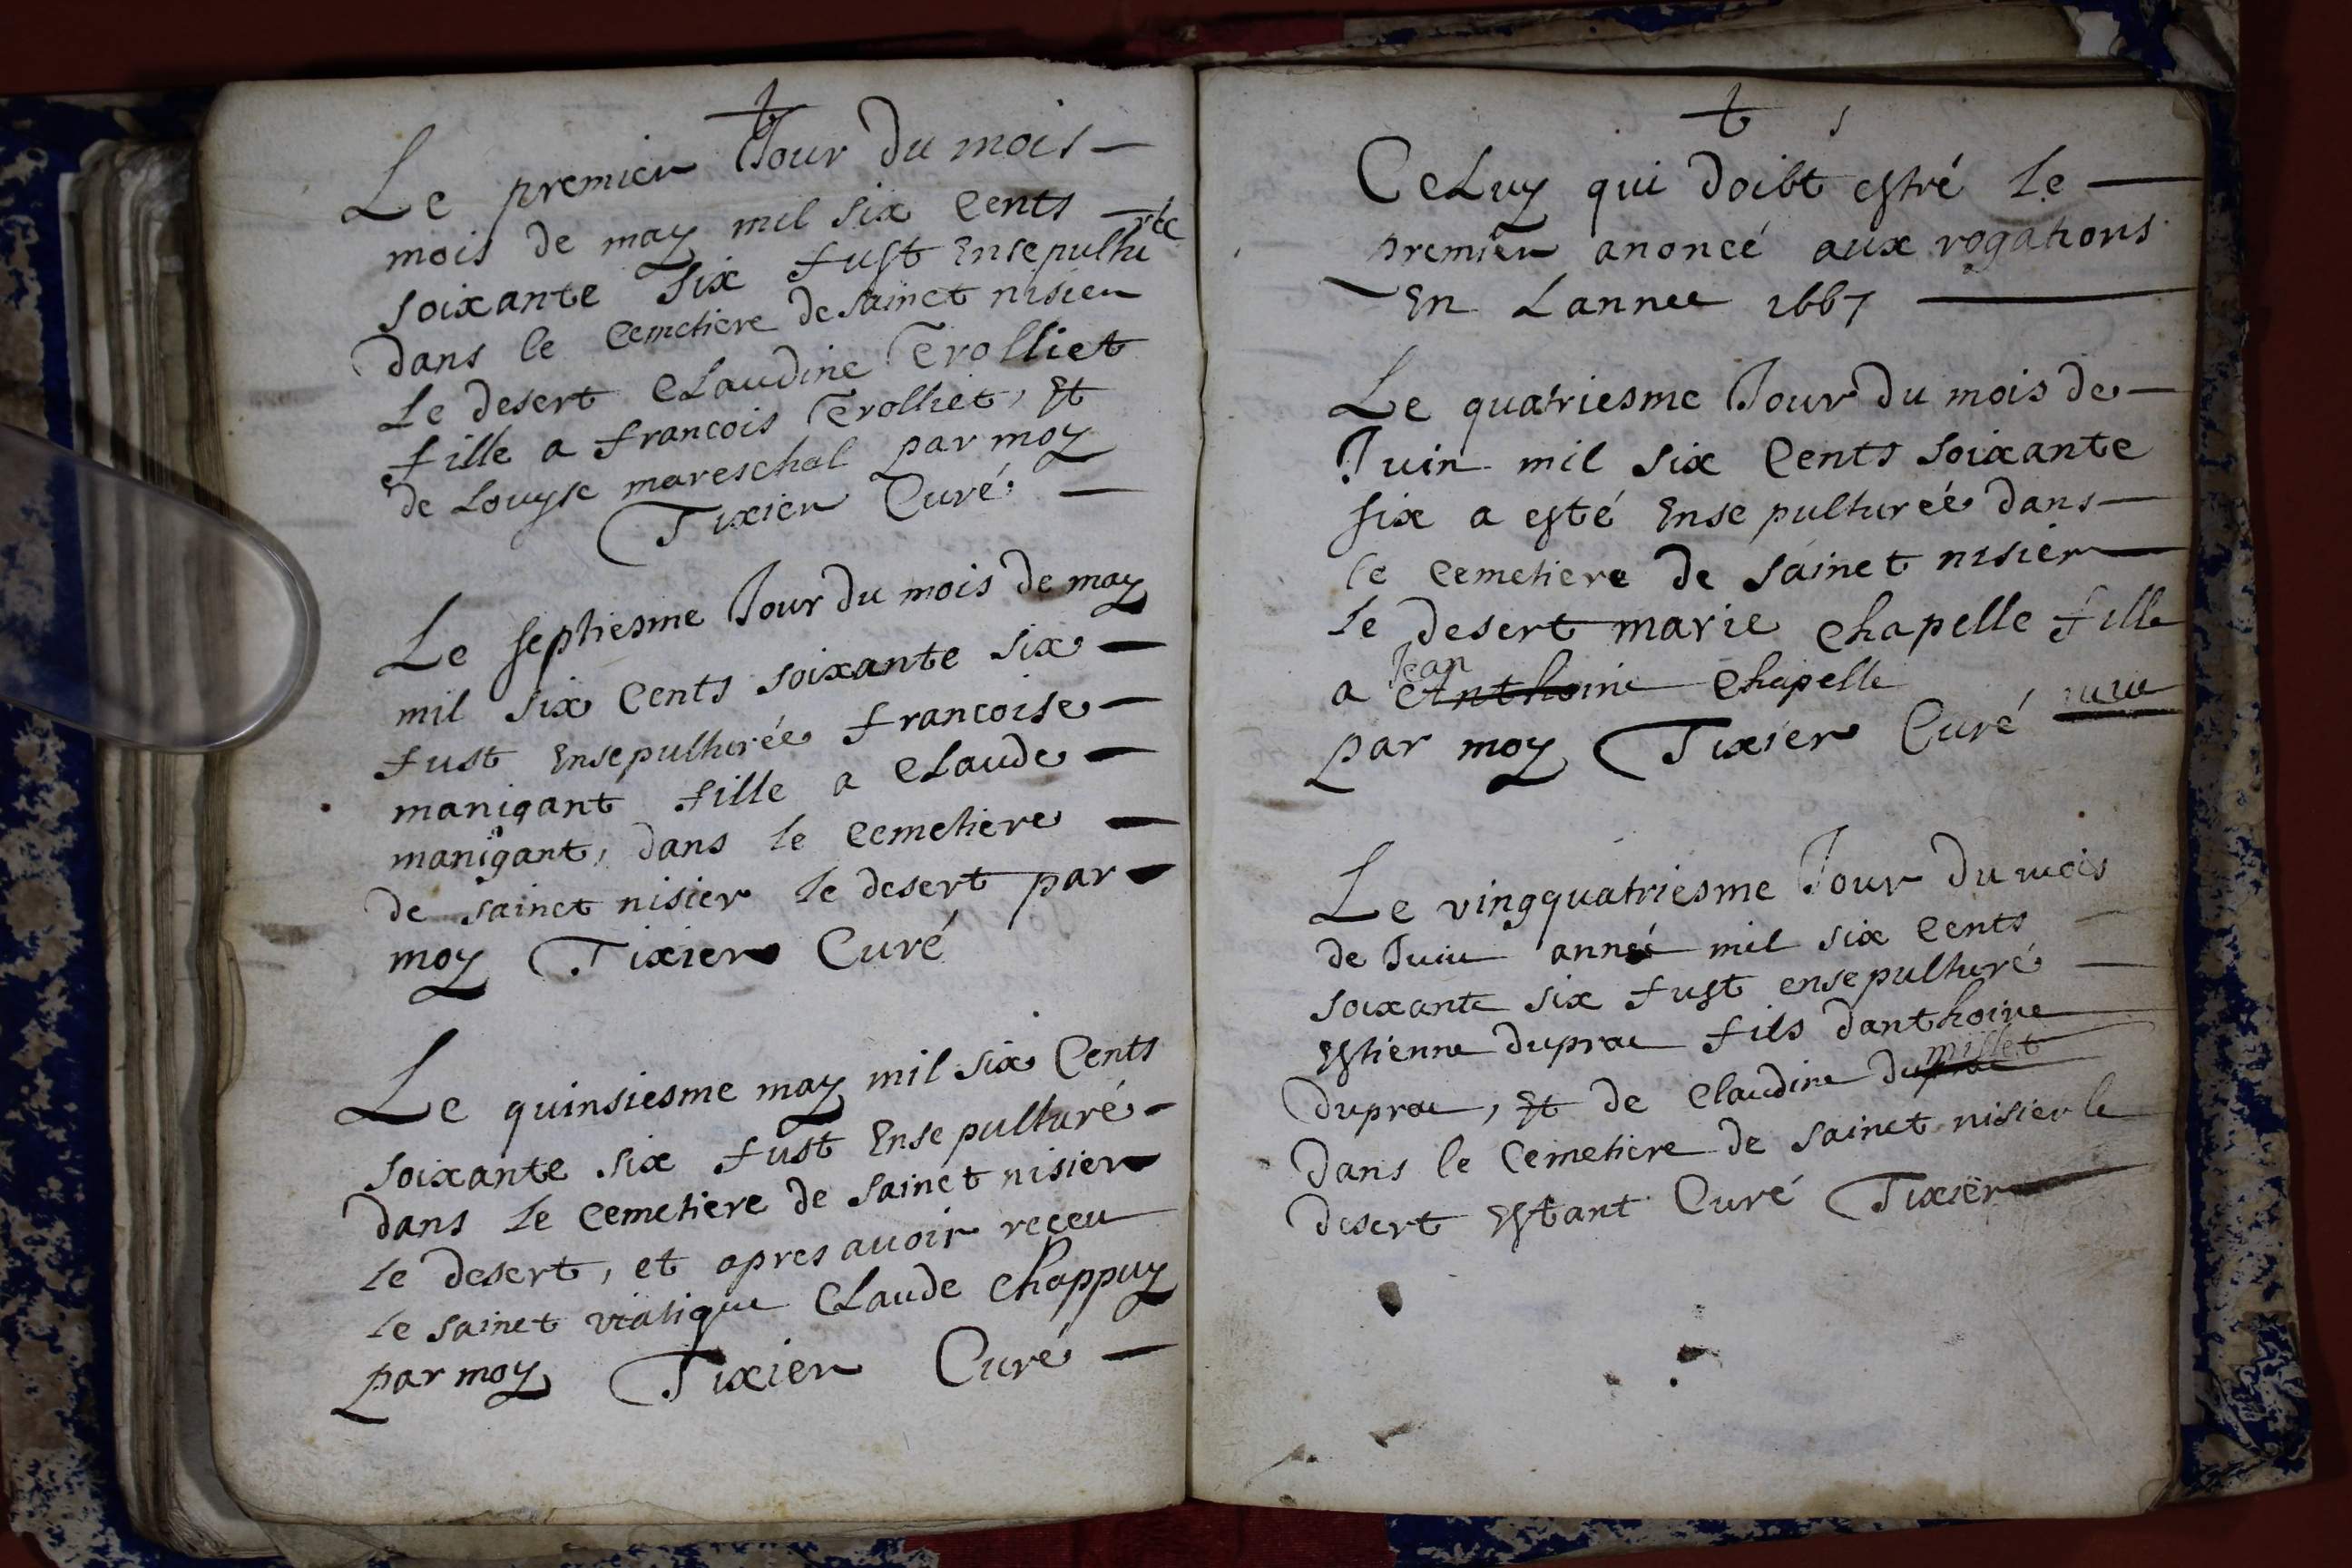 Le premier Jour du mois
mois de may mil six cents
soixante six fust Ensepulturée
dans le cemetiere de sainct nisier
Le desert Claudine Terolliet
fille a francois Terolliet, Et
de Louyse mareschal par moy
Tixier Curé
Le septiesme Jour du mois de may
mil six cents soixante six
fust Ensepulturée francoise
manigant fille a Claude
manigant, dans le cemetiere
de sainct nisier le desert par
moy Tixier Curé
Le quinsiesme may mil six Cents
soixante six fust Ensepulturé
dans le cemetiere de sainct nisier
le desert, et apres avoir reçeu
le sainct viatique Claude Chappuy
par moy Tixier Curé
CeLuy qui doibt estré le
premier anoncé aux rogations
En Lannee 1667
Le quatriesme Jour du mois de
Juin mil six Cents soixante
six a esté Ensepulturée dans
le cemetiere de sainct nisier
le desert marie chapelle fille
a Jean Anthoine Chapelle
par moy Tixier Curé
Le vingquatriesme Jour du mois
de Juin année mil six cents
soixante six fust ensepulturé
Estienne duprae fils danthoine
duprae, Et de Claudine millet
dans le Cemetiere de sainct nisier le
desert Estant Curé Tixier